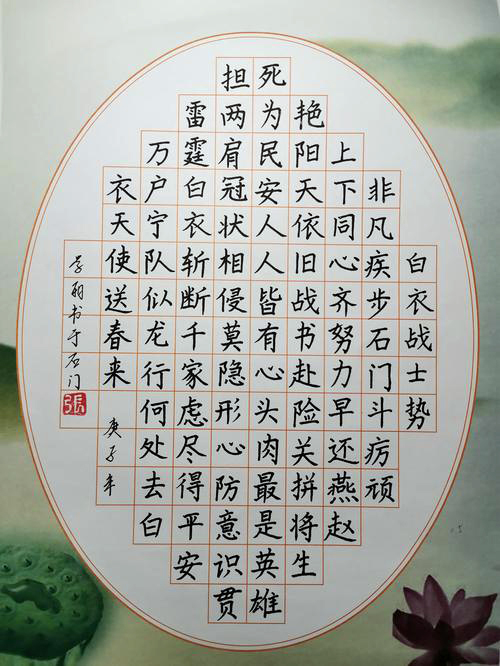 白衣战士势
非凡疾步石门斗疠顽
上下同心齐努力早还燕赵
艳阳天依旧战书赴险关拼将生
死为民安人人皆有心头肉最是英雄
担两肩冠状相侵莫隐形心防意识贯
雷霆白衣斩断千家虑尽得平安
万户宁队似龙行何处去白
衣天使送春来
庚子年
丽书于石门
张